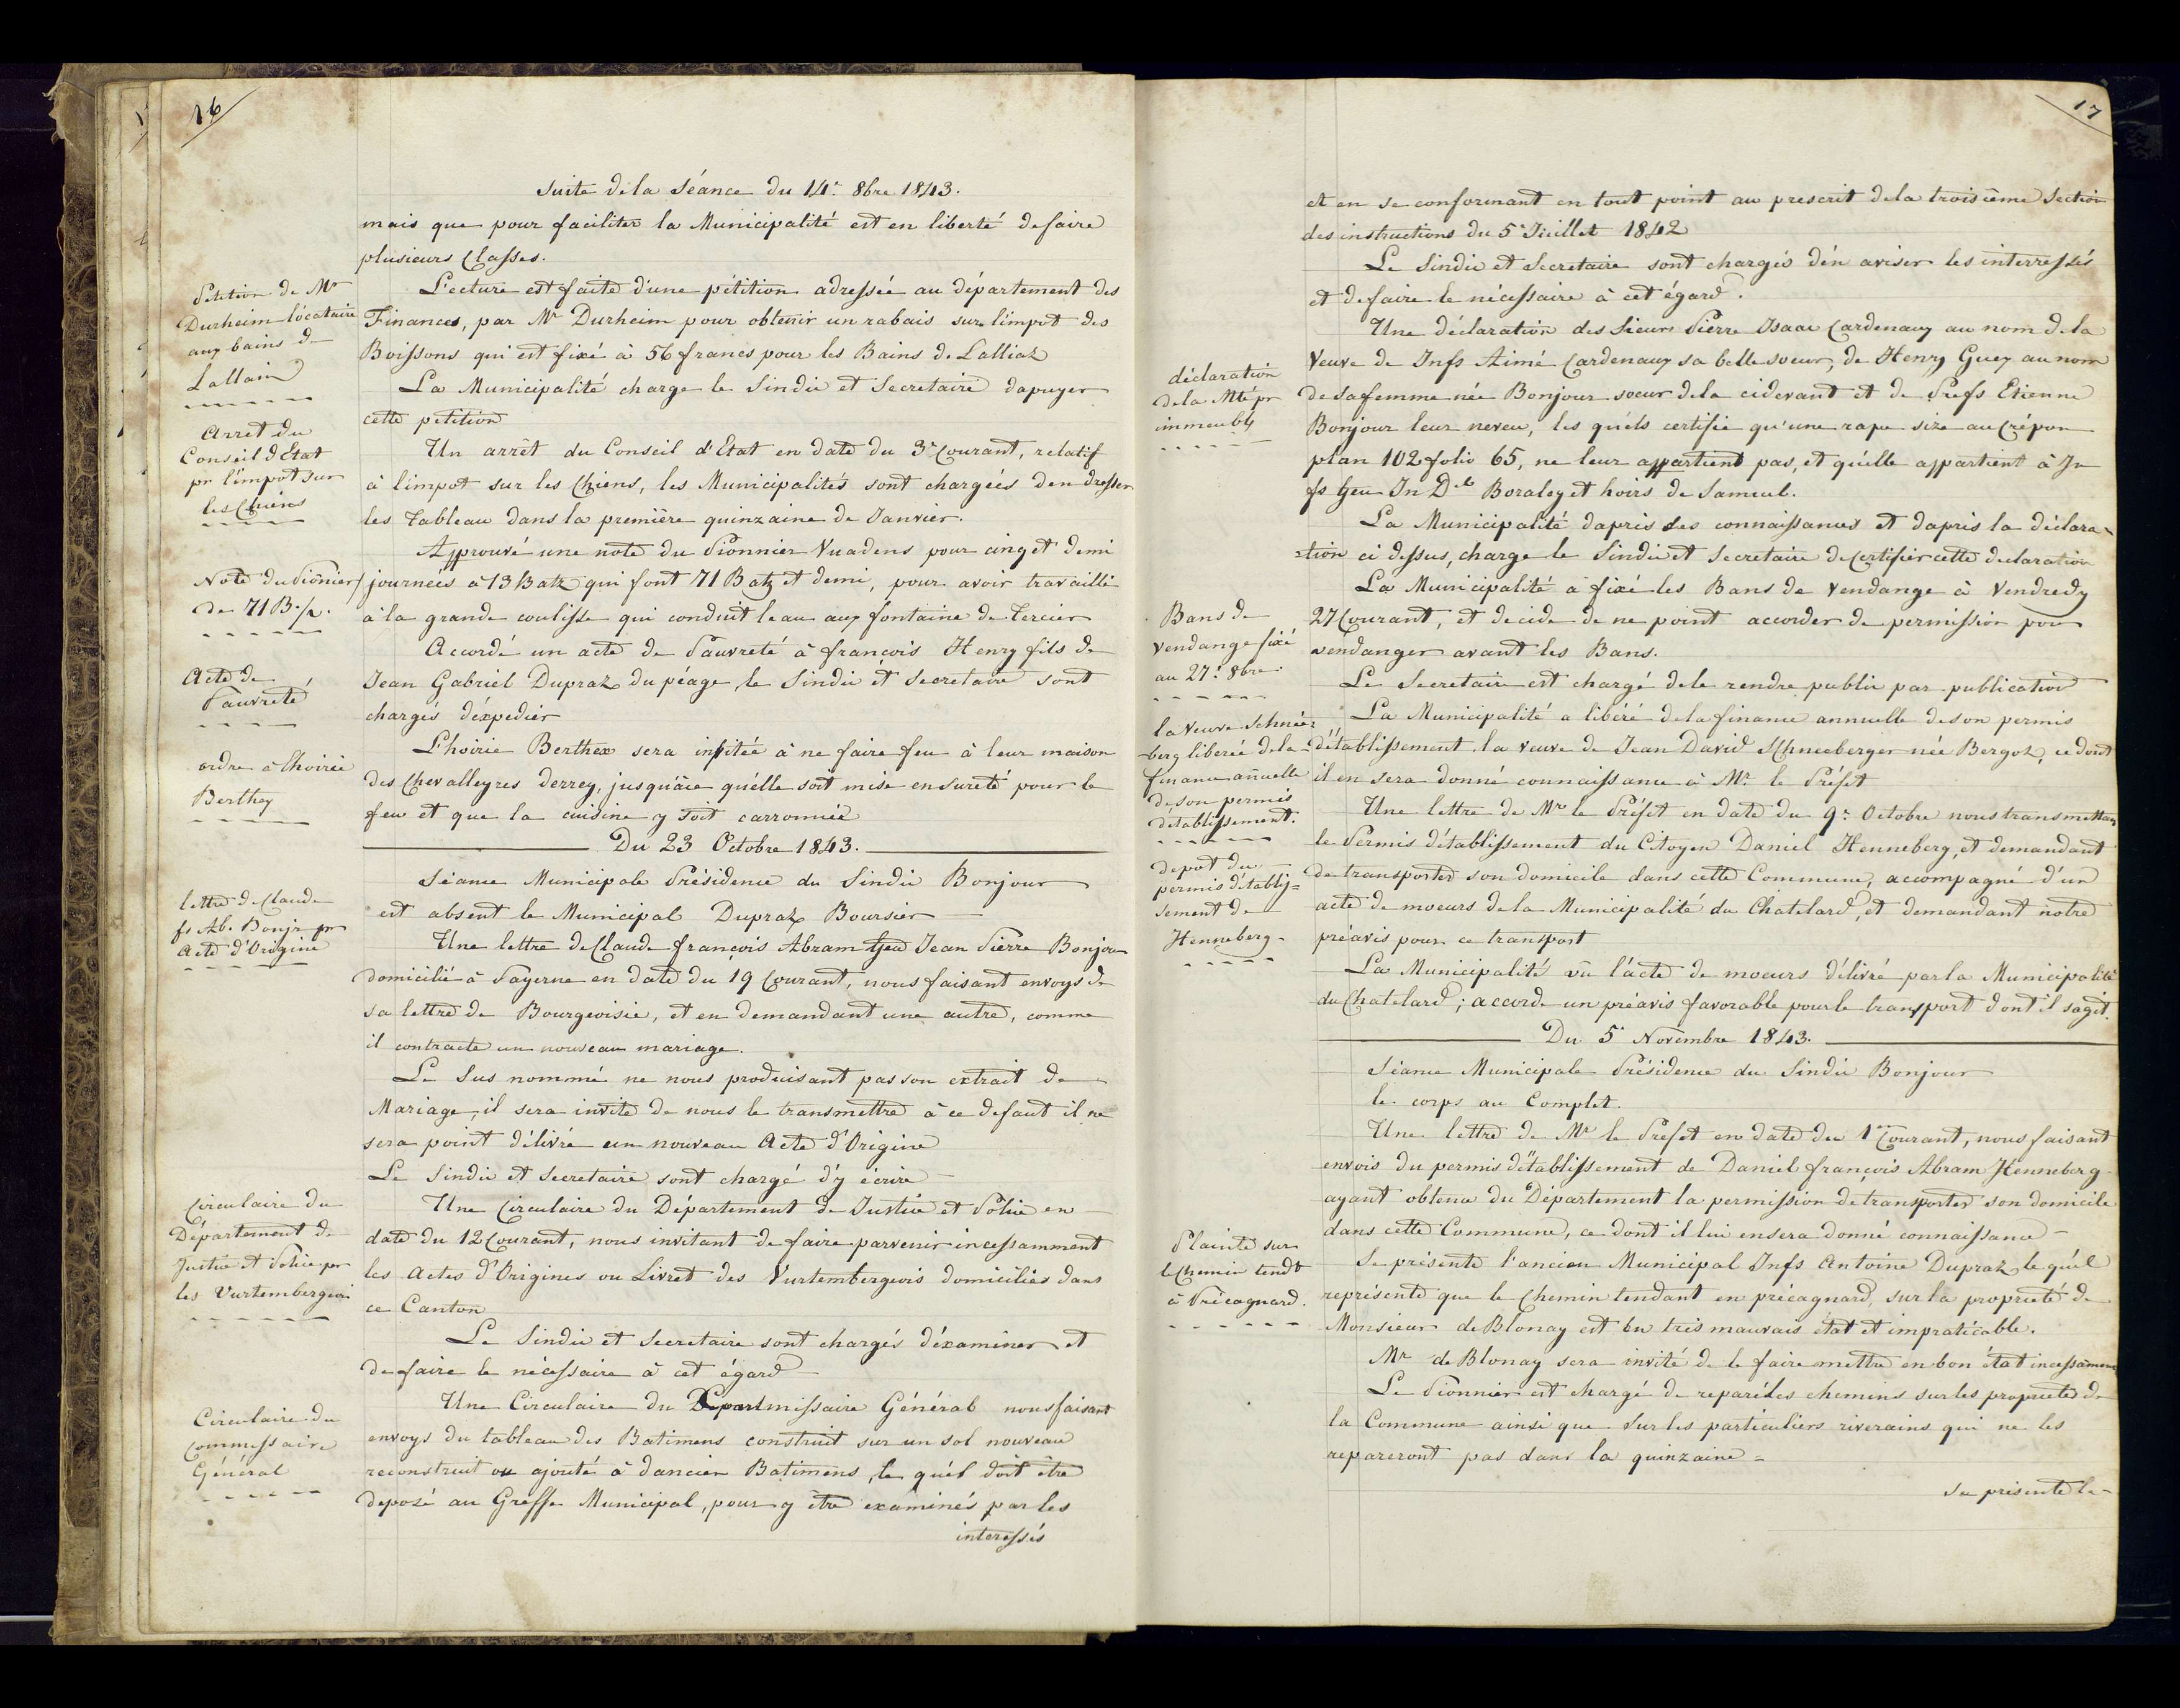 16
Suite de la Séance du 14e. 8bre 1843.
mais que pour faciliter la Municipalité est en liberté de faire
plusieurs Classes.
Petition de Mr
Durheim locataire
aux bains de
Lallain
L'ecture est faite d'une pétition adressée au département des
Finances, par Mr Durheim pour obtenir un rabais sur l'impot des
Boissons qui est fixé à 56 francs pour les Bains de Lalliaz
La Municipalité charge le Sindic et Secretaire dapuyer
cette petition
Arret du
Conseil d'Etat
pr l'impot sur
les Chiens
Un arrêt du Conseil d'Etat en date du 3e Courant, relatif
à l'impot sur les Chiens, les Municipalités sont chargées d'en dresser
les Tableau dans la première quinzaine de Janvier.
Note du Pionier
de 71 B. 1/2.
Approuvé une note du Pionnier Vuadens pour cinq et demi
journées à 13 Batz qui font 71 Batz et demi, pour avoir travaillé
à la grande coulisse qui conduit l'eau aux fontaine de Tercier
Acte de
Pauvreté
Accordé un acte de Pauvreté à françois Henry fils de
Jean Gabriel Dupraz du péage, le Sindic et Secretaire sont
chargés d'éxpedier
ordre à l'hoirie
Berthex
L'hoirie Berthex sera invitée à ne faire feu à leur maison
des Chevalleyres derrey, jusqu'àce qu'elle soit mise en sureté pour le
feu et que la cuisine y soit carronnée
Du 23 Octobre 1843.
Séance Municipale Présidence du Sindic Bonjour
est absent le Municipal Dupraz Boursier
lettre de Claude
fs Ab. Bonjr pr
Acte d'Origine
Une lettre de Claude françois Abram feu Jean Pierre Bonjour
domicilié à Payerne en date du 19 Courant, nous faisant envoys de
sa lettre de Bourgeoisie, et en demandant une autre, comme
il contracte un nouveau mariage.
Le Sus nommé ne nous produisant pas son extrait de
Mariage, il sera invité de nous le transmettre à ce defaut il ne
sera point délivré un nouveau Acte d'Origine
Le Sindic et Secretaire sont chargé d'y écrire
Circulaire du
Département de
Justice et Police pr
les Vurtembergeois
Une Circulaire du Département de Justice et Police en
date du 12 Courant, nous invitant de faire parvenir incessamment
les Actes d'Origines ou Livret des Vurtembergeois domiciliés dans
ce Canton
Le Sindic et Secretaire sont chargés d'éxaminer et
de faire le nécessaire à cet égard
Circulaire du
Commessaire
Général
Une Circulaire du missaire Général nous faisant
envoys du tableau des Batimens construit sur un sol nouveau
reconstruit ou ajouté à d'ancien Batimens, le quél doit être
deposé au Greffe Municipal, pour y être examinés par les
interessés
17
et en se conformant en tout point au prescrit de la troisième Section
des instructions du 5e Juillet 1842
Le Sindic et Secretaire sont chargés d'én aviser les interressés
et de faire le nécessaire à cet égard.
déclaration
de la Mté pr
immeubls
Une déclaration des Sieurs Pierre Isaac Cardenaux au nom de la
Veuve de Jnfs Aimé Cardenaux sa belle soeur, de Henry Guex au nom
de sa femme née Bonjour soeur de la cidevant et de Prefs Etienne
Bonjour leur neveu, les quéls certifie qu'une rape size au Crépon
plan 102 folio 65, ne leur appartient pas, et qu'elle appartient à Jn
fs feu Jn Dl Boraley et hoirs de Samuel.
La Municipalité d'apris ses connaissances et d'apris la déclara-
-tion ci dessus, charge le Sindic et Secretaire de Certifier cette declaration
Bans de
vendange fixé
au 27e 8bre.
La Municipalité à fixé les Bans de Vendange à Vendredy
27 Courant, et decide de ne point accorder de permission pour
vendanger avant les Bans.
Le Secretaire est chargé de le rendre public par publication
la Veuve Schnée=
berg liberée de la
finance añuelle
de son permis
détablissement.
La Municipalité a libéré de la finance annuelle de son permis
d'établissement la veuve de Jean David Schneeberger née Bergoz, ce dont
il en sera donné connaissance à Mr. le Préfet
depot du
permis d'établis=
sement de
Henneberg.
Une lettre de Mr le Préfet en date du 9e Octobre nous transmettant
le Permis d'établissement du Citoyen Daniel Henneberg, et demandant
de transporter son domicile dans cette Commune, accompagné d'un
acte de moeurs de la Municipalité du Chatelard, et demandant notre
préavis pour ce transport
La Municipalité vû l'acte de moeurs délivré par la Municipalité
du Chatelard; accorde un préavis favorable pour le transport dont il sagit.
Du 5e Novembre 1843.
Séance Municipale Présidence du Sindic Bonjour
le corps au Complet.
Une lettre de Mr le Préfet en date du 1er Courant, nous faisant
envois du permis d'établissement de Daniel françois Abram Henneberg
ayant obtenu du Département la permission de transporter son domicile
dans cette Commune, ce dont il lui en sera donné connaissance
Plainte sur
le Chemin tendt
à Précagnard.
Se présente l'ancien Municipal Jnfs Antoine Dupraz le quél
représente que le Chemin tendant en précagnard, sur la proprieté de
Monsieur de Blonay est en tris mauvais état et impraticable.
Mr de Blonay sera invité de le faire mettre en bon état incessamment
Le Pionnier est chargé de reparéles chemins sur les proprietés de
la Commune ainsi que sur les particuliers riverains qui ne les
repareront pas dans la quinzaine =
Se présente le